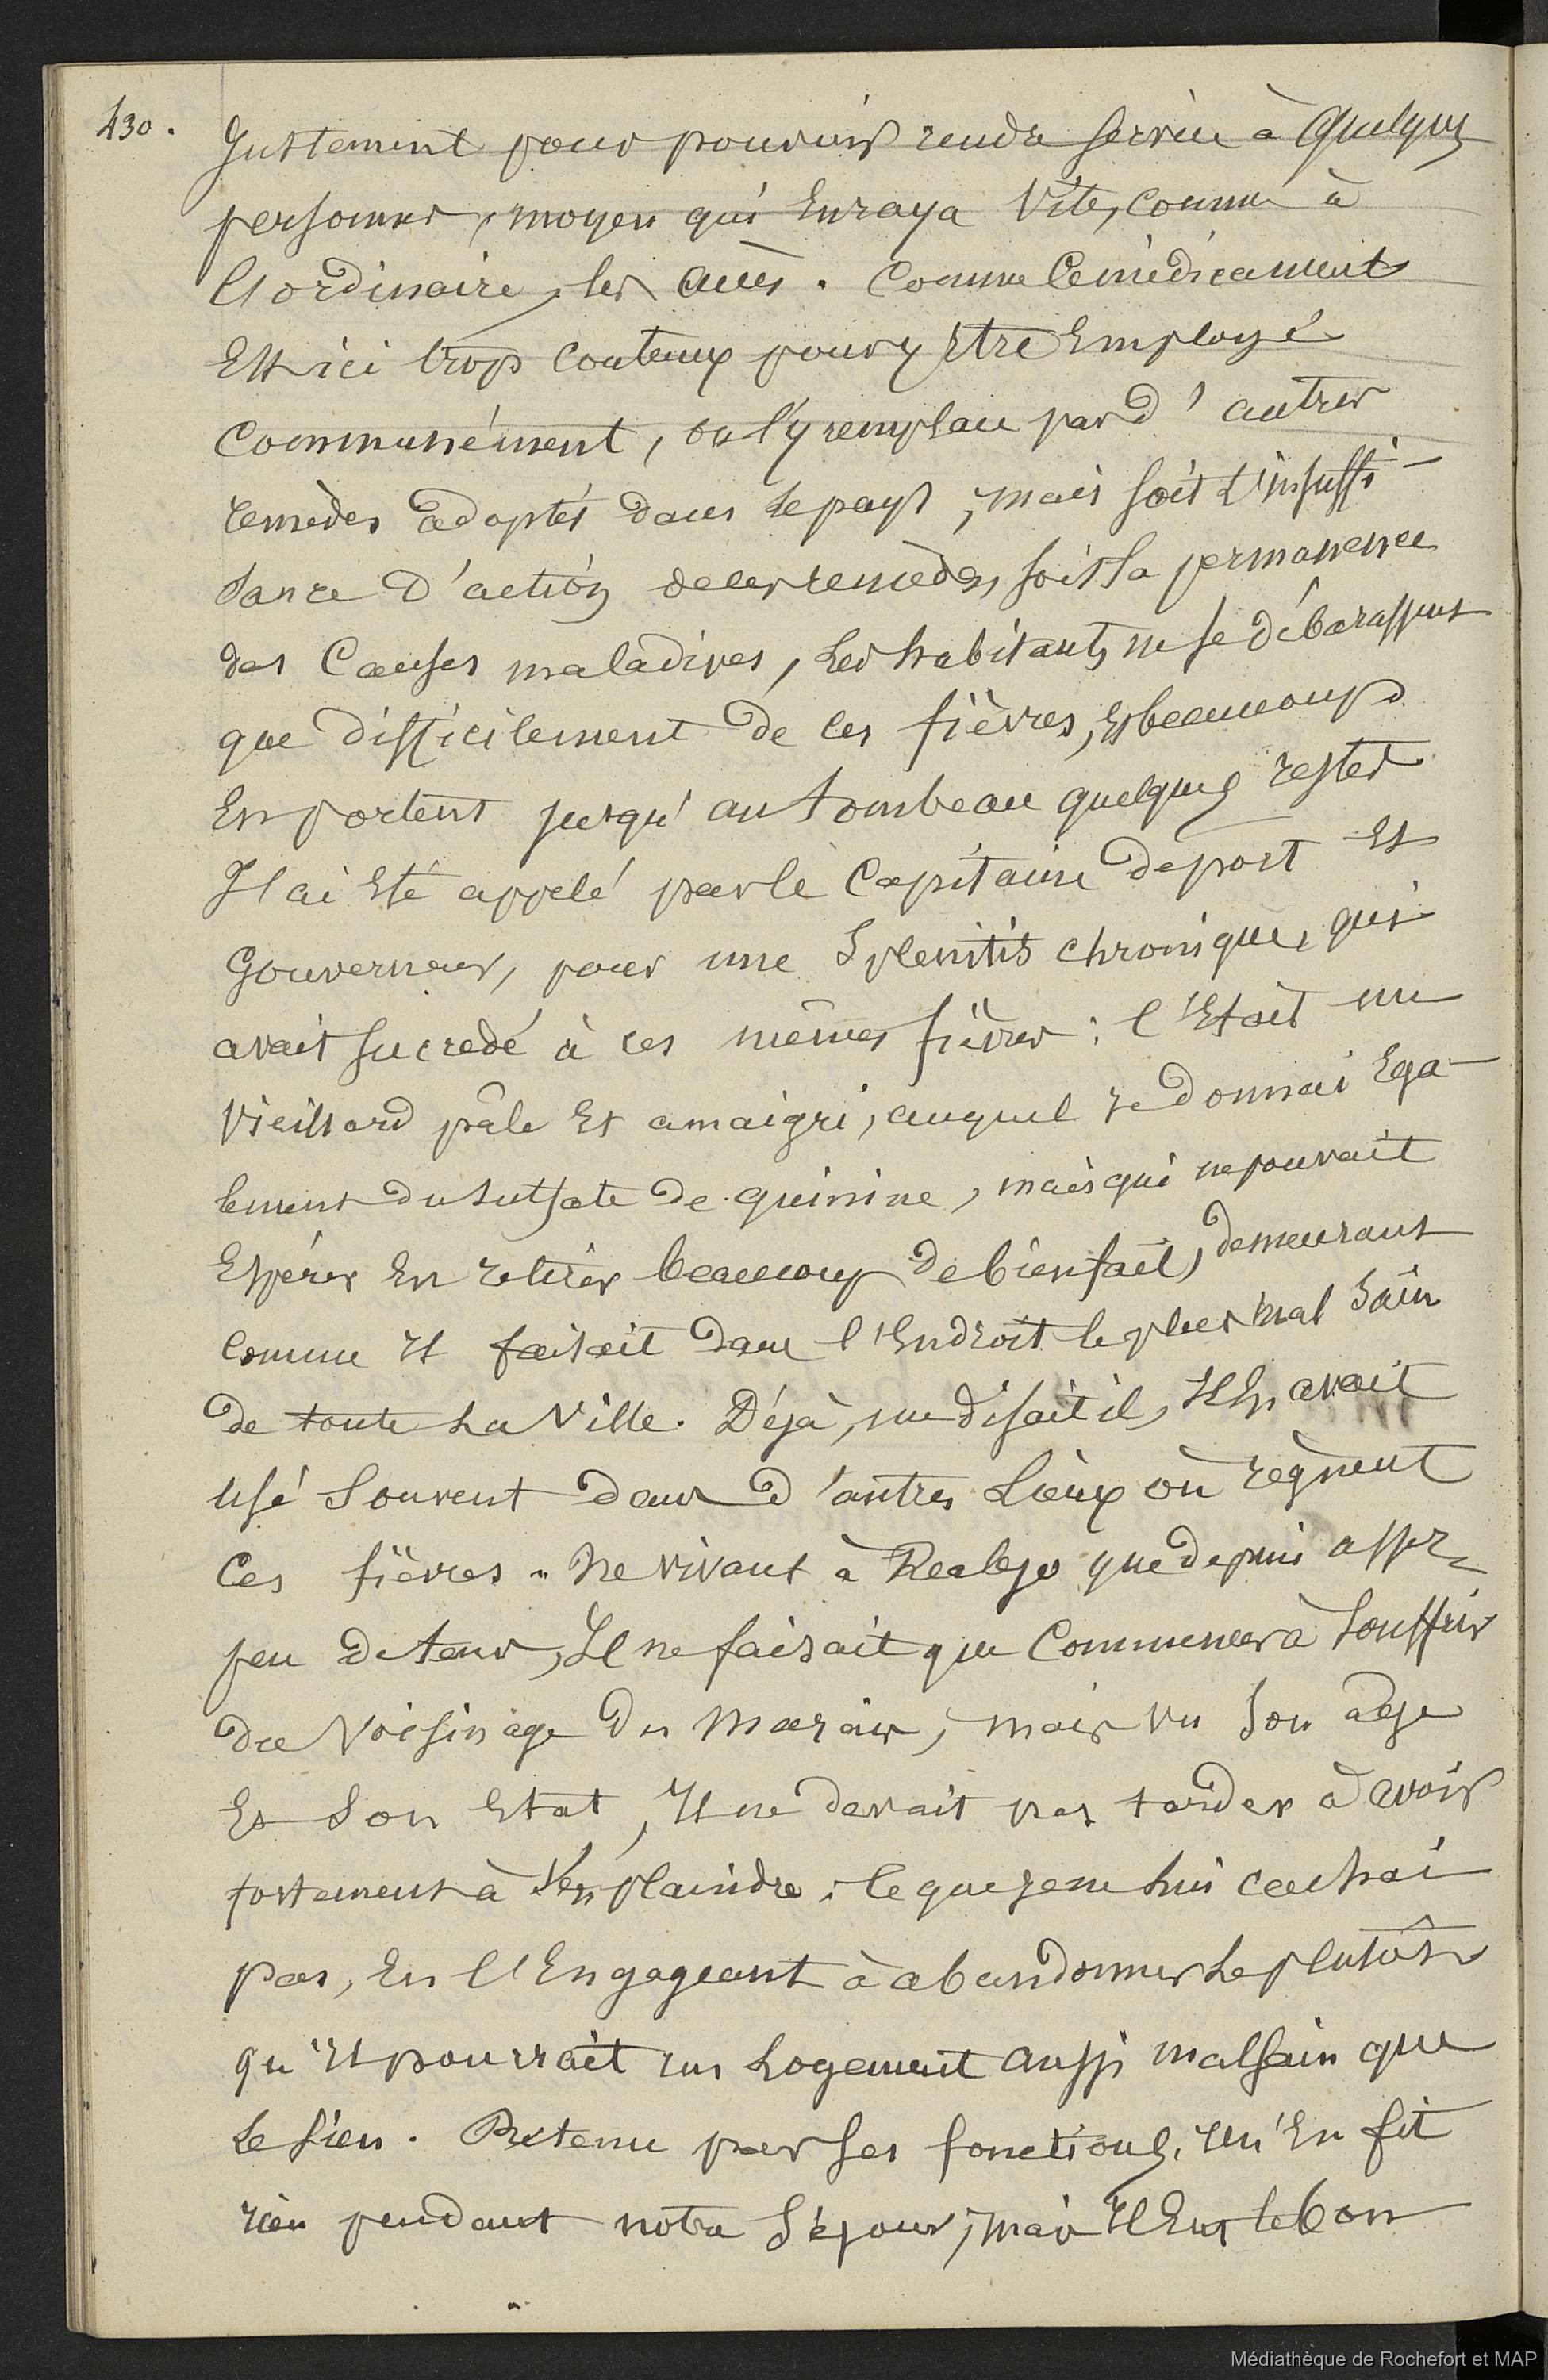 430.
Justement pour pouvoir rendre service à quelques
personnes, moyen qui Enraya vite, comme à
l'ordinaire, les accès. Comme ce médicament
Est ici trop couteux pour y Etre Employé
Communément, on l'y remplace par d'autres
remèdes adoptés dans le pays, mais soit l'insuffi-
sance d'action de ces remèdes, soit la permanence
des Causes maladives, les habitants ne se débarassent
que difficilement de ces fièvres, Et beaucoup
En portent jusqu'au tombeau quelques restes
J'ai Eté appelé par le Capitaine de port Et
Gouverneur, pour une Splenitis chronique, qui
avait succedé à ces mêmes fièvres: c'Etait un
Vieillard pâle Et amaigri, auquel je donnai Ega-
lement du sulfate de quinine, mais qui ne pouvait
Espérer En retirer beaucoup de bienfait, demeurant
comme Il faisait dans l'Endroit le plus mal sain
de toute la Ville. Déjà, me disait il, Il En avait
usé souvent dans d'autres Lieux où règnent
Ces fièvres. Ne vivant à Realejo que depuis assez
peu de tems, Il ne faisait que Commencer à souffrir
du Voisinage des Marais, mais vu son âge
Et son Etat, Il ne devait pas tarder à avoir
fortement à s'En plaindre; ce que je ne lui cachai
pas, En l'Engageant à abandonner le plutôt
qu'Il pourrait un Logement aussi malsain que
le sien. Retenu par ses fonctions, Il n'En fit
rien pendant notre Séjour, mais Il Eut le bon
Médiathèque de Rochefort et MAP